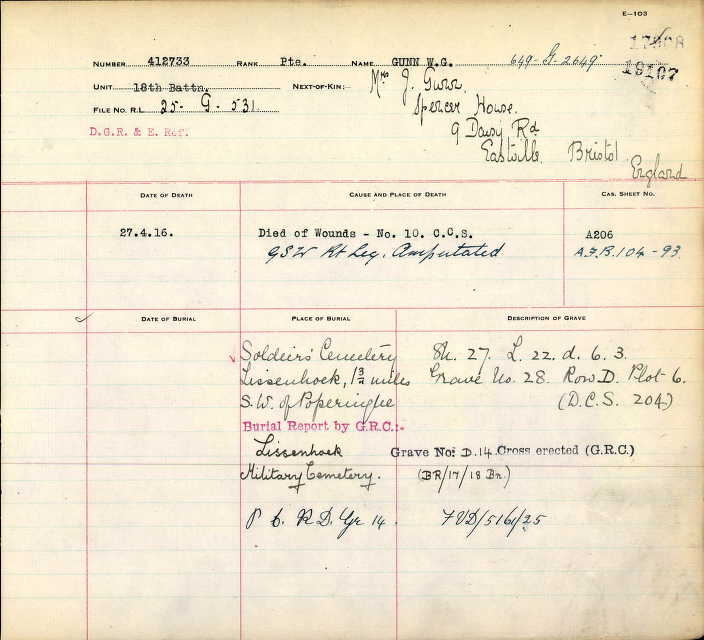 E-103
19107
NUMBER 412733 RANK Pte. NAME GUNN W.G. 649-G-2649
UNIT 18th Battn. NEXT-OF-KIN:- Mrs J. Gunn.
FILE NO. R.L. 25-G-531 Spencer House.
D.G.R. & E. Ref. 9 Daisy Rd
Eastville Bristol
England
DATE OF DEATH CAUSE AND PLACE OF DEATH CAS. SHEET NO.
27.4.16. Died of Wounds - No. 10. C.C.S. A206
GSW Rt Leg. Amputated A.F.B.104-93
DATE OF BURIAL PLACE OF BURIAL DESCRIPTION OF GRAVE
Soldiers' Cemetery Sh. 27. L. 22. d. 6. 3.
Lissenhoek, 1 3/4 miles Grave No. 28. Row D. Plot 6.
S.W. of Poperinghe (D.C.S. 204)
Burial Report by G.R.C:-
Lissenhoek Grave No: D.14. Cross erected (G.R.C.)
Military Cemetery. (BR/17/18 Bn.)
P 6. R D. Gr 14. FVD/5161/25